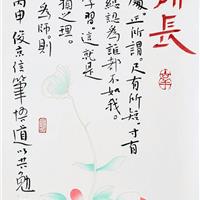 所長
處。正所謂。尺有所短。寸有
總認為誰都不如我。
學習。這就是
之理。
為師。則
丙申俊京信筆悟道以共勉